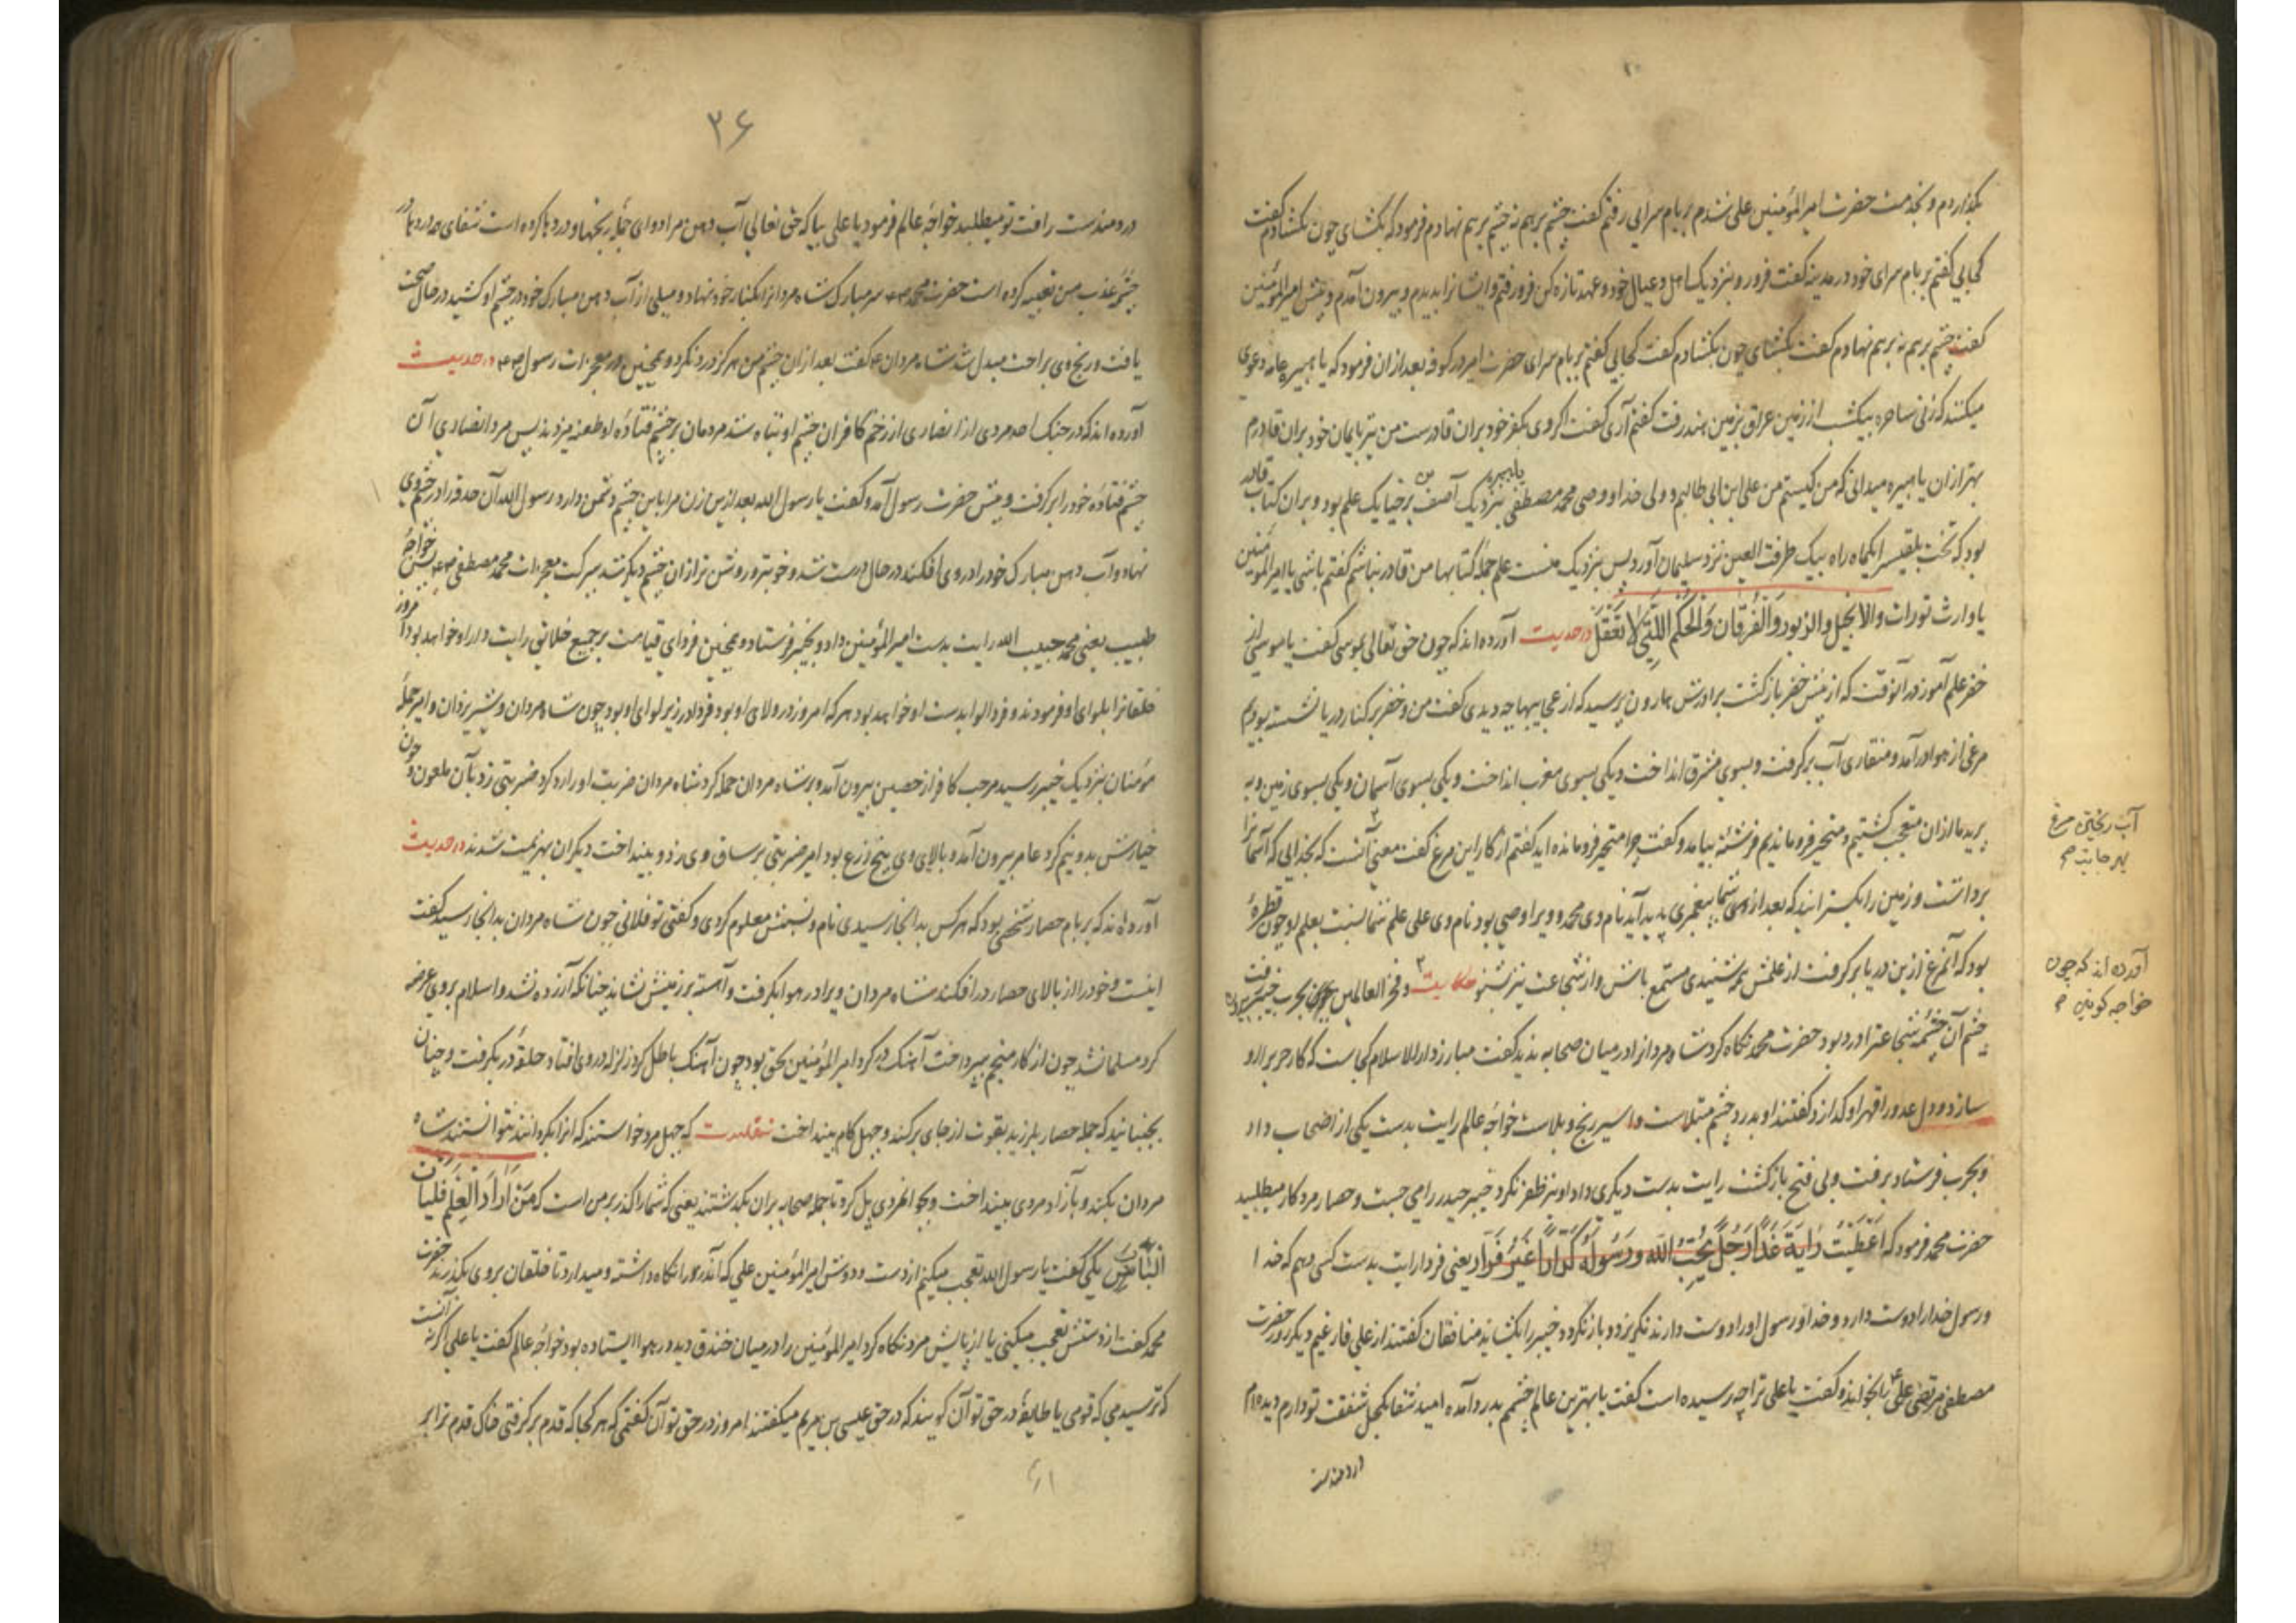 بگذاردم و بخدمت حضرت امیرالمؤمنین علی شدم بر بام سرایی رفتم گفت چشم برهم نه چشم برهم نهادم فرمود که بگشای چون بگشادم گفت
کجایی گفتم بر بام سرای خود در مدینه گفت فرو رو و بنزدیک اهل و عیال خود و عهد تازه کن فرو رفتم و ایشانرا بدیدم و بیرون آمدم و پیش امیرالمؤمنین
گفت چشم برهم نه برهم نهادم گفت بگشای چون بگشادم گفت کجایی گفتم بر بام سرای حضرت امیر در کوفه بعد از ان فرمود که یا هبیره عامه دعوی
میکنند که زنی ساحره بیکشب از زمین عراق بزمین هند رفت گفتم آری گفت اگر وی بکفر خود بران قادرست من نیز بایمان خود بران قادرم
بهتر ازان یا هبیره میدانی که من کیستم من علی ابن ابی طالبم و ولی خدا و وصی محمد مصطفی یا هبیره بنزدیک آصف بن برخیا یک علم بود و بران کتاب قادر
بود که تخت بلقیس را یکماه راه بیک طرفت العین نزد سلیمان آورد پس بنزدیک منست علم جمله کتابها من قادر نباشم گفتم باشی یا امیرالمؤمنین
یا وارث تورات والانجیل والزبور وَالْفُرقان وَالحُکم اللَّتی لا تعقل در حدیث آورده اند که چون حق تعالی بموسی گفت یا موسی از
خضر علم آموز در آنوقت که از پیش خضر بازگشت برادرش هارون پرسید که از عجایبها چه دیدی گفت من و خضر بر کنار دریا نشسته بودیم
مرغی از هوا درآمد و منقاری آب برگرفت و بسوی مشرق انداخت و یکی بسوی مغرب انداخت و یکی بسوی آسمان و یکی بسوی زمین و به
پرید ما ازان متعجب گشتیم و متحیر فروماندیم فرشتهٔ بیامد و گفت چرا متحیر فرومانده اید گفتم از کار این مرغ گفت معنی آنست که بخدایی که آسمانرا
برداشت و زمین را بگسترانید که بعد از شما پیغمبری پدید آید نام وی محمد و ویرا وصی بود نام وی علی علم شما نسبت بعلم او چون قطرهٔ
بود که آنمرغ ازین دریا برگرفت از علمش بشنیدی مستمع باش و از شجاعت نیز بشنو حکایت و فخر العالمین چون بحرب خیبر رفت
چشم آن چشمه شجاعت را درد بود حضرت محمد نگاه کرد شاه مردانرا در میان صحابه ندید گفت مبارز دارالاسلام کجاست که کار حرب را او
سازد و دل عدو را قهر او گدازد گفتند او بدرد چشم مبتلاست و اسیر رنج و بلاست خواجهٔ عالم رایت بدست یکی از اصحاب داد
و بحرب فرستاد برفت و بی فتح بازگشت رایت بدست دیگری داد او نیز ظفر نکرد خیبر حیدر را می جست و حصار مرد کار میطلبید
حضرت محمد فرمود که اَعْطَیْتُ رایَةَ غَداً رَجُلٌ یُحِبُّ الله وَرَسُولُه کَرّاراً غَیْرُ فَرّار یعنی فردا رایت بدست کسی دهم که خدا
و رسول خدا را دوست دارد و خدا و رسول او را دوست دارند نگریزد و بازنگردد و خیبر را بگشاید منافقان گفتند از علی فارغیم دیگر روز حضرت
مصطفی مرتضی علی را بخواند و گفت یا علی ترا چه رسیده است گفت یا بهترین عالم چشمم بدرد آمده امید شفا بکحل شفقت تو دارم دیده‌ام
دردمندست
آب ریختن مرغ
بهر جانب
آورده اند که چون
خواجه کونین
۳۶
دردمندست رافت تو میطلبد خواجهٔ عالم فرمود یا علی بیا که حق تعالی آب دهن مرا دوای جمله رنجها و دردها کرده است شفای همه دردها در
چشمهٔ عذب من تعبیه کرده است حضرت محمد سر مبارک شاه مردانرا بکنار خود نهاد و میلی از آب دهن مبارک خود در چشم او کشید در حال صحت
یافت و رنج وی براحت مبدل شد شاه مردان گفت بعد ازان چشم من هرگز درد نکرد و همچنین در معجزات رسول در حدیث
آورده اند که در جنگ احد مردی از انصاری از زخم کافران چشم او تباه شد مردمان بر چشم فتادهٔ او طعنه میزدند پس مرد انصاری آن
چشم فتادهٔ خود را برگرفت و پیش حضرت رسول آمد و گفت یا رسول الله بعد ازین زن مرا باین چشم دشمن دارد رسول الله آن حدقه را در چشم وی
نهاد و آب دهن مبارک خود را در وی افکند در حال درست شد و خوبتر و روشن تر ازان چشم دیگر شد ببرکت معجزات محمد مصطفی پس خواجه
طبیب یعنی محمد حبیب الله رایت بدست امیرالمؤمنین داد و بخیبر فرستاد و همچنین فردای قیامت بر جمیع خلایق رایت دار او خواهد بود امروز
خلقانرا بلوای او فرمودند و فردا لوا بدست او خواهد بود هر که امروز در ولای او بود فردا در زیر لوای او بود چون شاه مردان و شیر یزدان و امیر جمله
مؤمنان بنزدیک خیبر رسید مرحب کافر از حصین بیرون آمد و بر شاه مردان حمله کرد شاه مردان ضربت او را رد کرد ضربتی زد بآن ملعون و چون
خیارش بدو نیم کرد عامر بیرون آمد و بالای وی پنج ذرع بود امیر ضربتی بر ساق وی زد و بینداخت دیگران بهزیمت شدند در حدیث
آورده اند که بر بام حصار شخصی بود که هر کس بدانجا رسیدی نام و نسبش معلوم کردی و گفتی تو فلانی چون شاه مردان بدانجا رسید گفت
اینست و خود را از بالای حصار در افکند شاه مردان ویرا در هوا بگرفت و آهسته بر زمینش نشاند چنانکه آزرده نشد و اسلام بر وی عرضه
کرد مسلمان شد چون از کار منجم بپرداخت آهنگ در کرد امیرالمؤمنین بحق بود چون آهنگ باطل کرد زلزله در وی افتاد حلقهٔ در بگرفت و چنان
بجنبانید که جمله حصار بلرزید بقوت از جای برکند و چهل گام بینداخت نقلست که چهل مرد خواستند که انرا بگردانند نتوانستند شاه
مردان بکند و بآزاد مردی بینداخت و بجوانمردی پل کرد تا جمله صحابه بران بگذشتند یعنی که شما را گذر بر من است که مَنْ اَرادَ العِلْم فَلیَأتِ
البابَ یکی گفت یا رسول الله تعجب میکنم از دست و دوش امیرالمؤمنین علی که آندر را نگاه داشته و میدارد تا خلقان بر وی بگذرند حضرت
محمد گفت از دستش تعجب میکنی یا از پایش مرد نگاه کرد امیرالمؤمنین را در میان خندق دید در هوا ایستاده بود خواجه عالم گفت یا علی اگر نه آنست
که ترسیدمی که قومی یا طایفهٔ در حق تو آن گویند که در حق عیسی بن مریم میگفتند امروز در حق تو آن گفتمی که هر کجا که قدم برگرفتی خاک قدم ترا بر